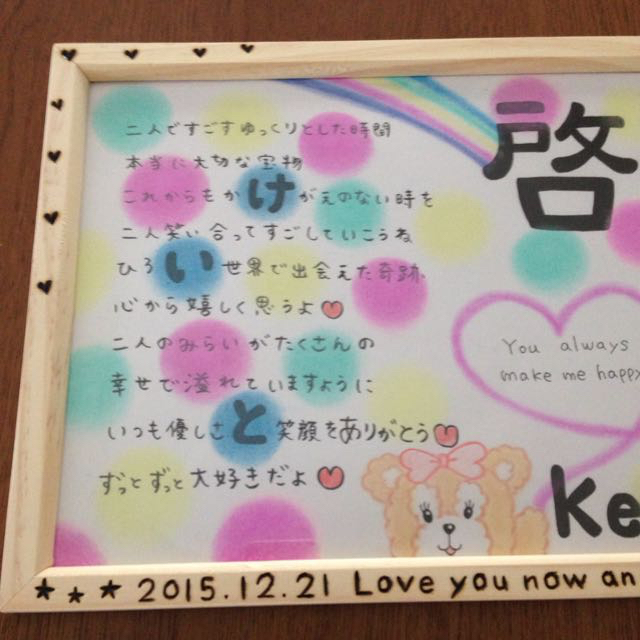 二人ですごすゆっくりとした時間
本当に大切な宝物
これからもかけがえのない時を
二人笑い合ってすごしていこうね
ひろい世界で出会えた奇跡、
心から嬉しく思うよ
二人のみらいがたくさんの
幸せで溢れていますように
いつも優しさと笑顔をありがとう
ずっとずっと大好きだよ
啓
You always
make me happy
Ke
2015.12.21 Love you now an